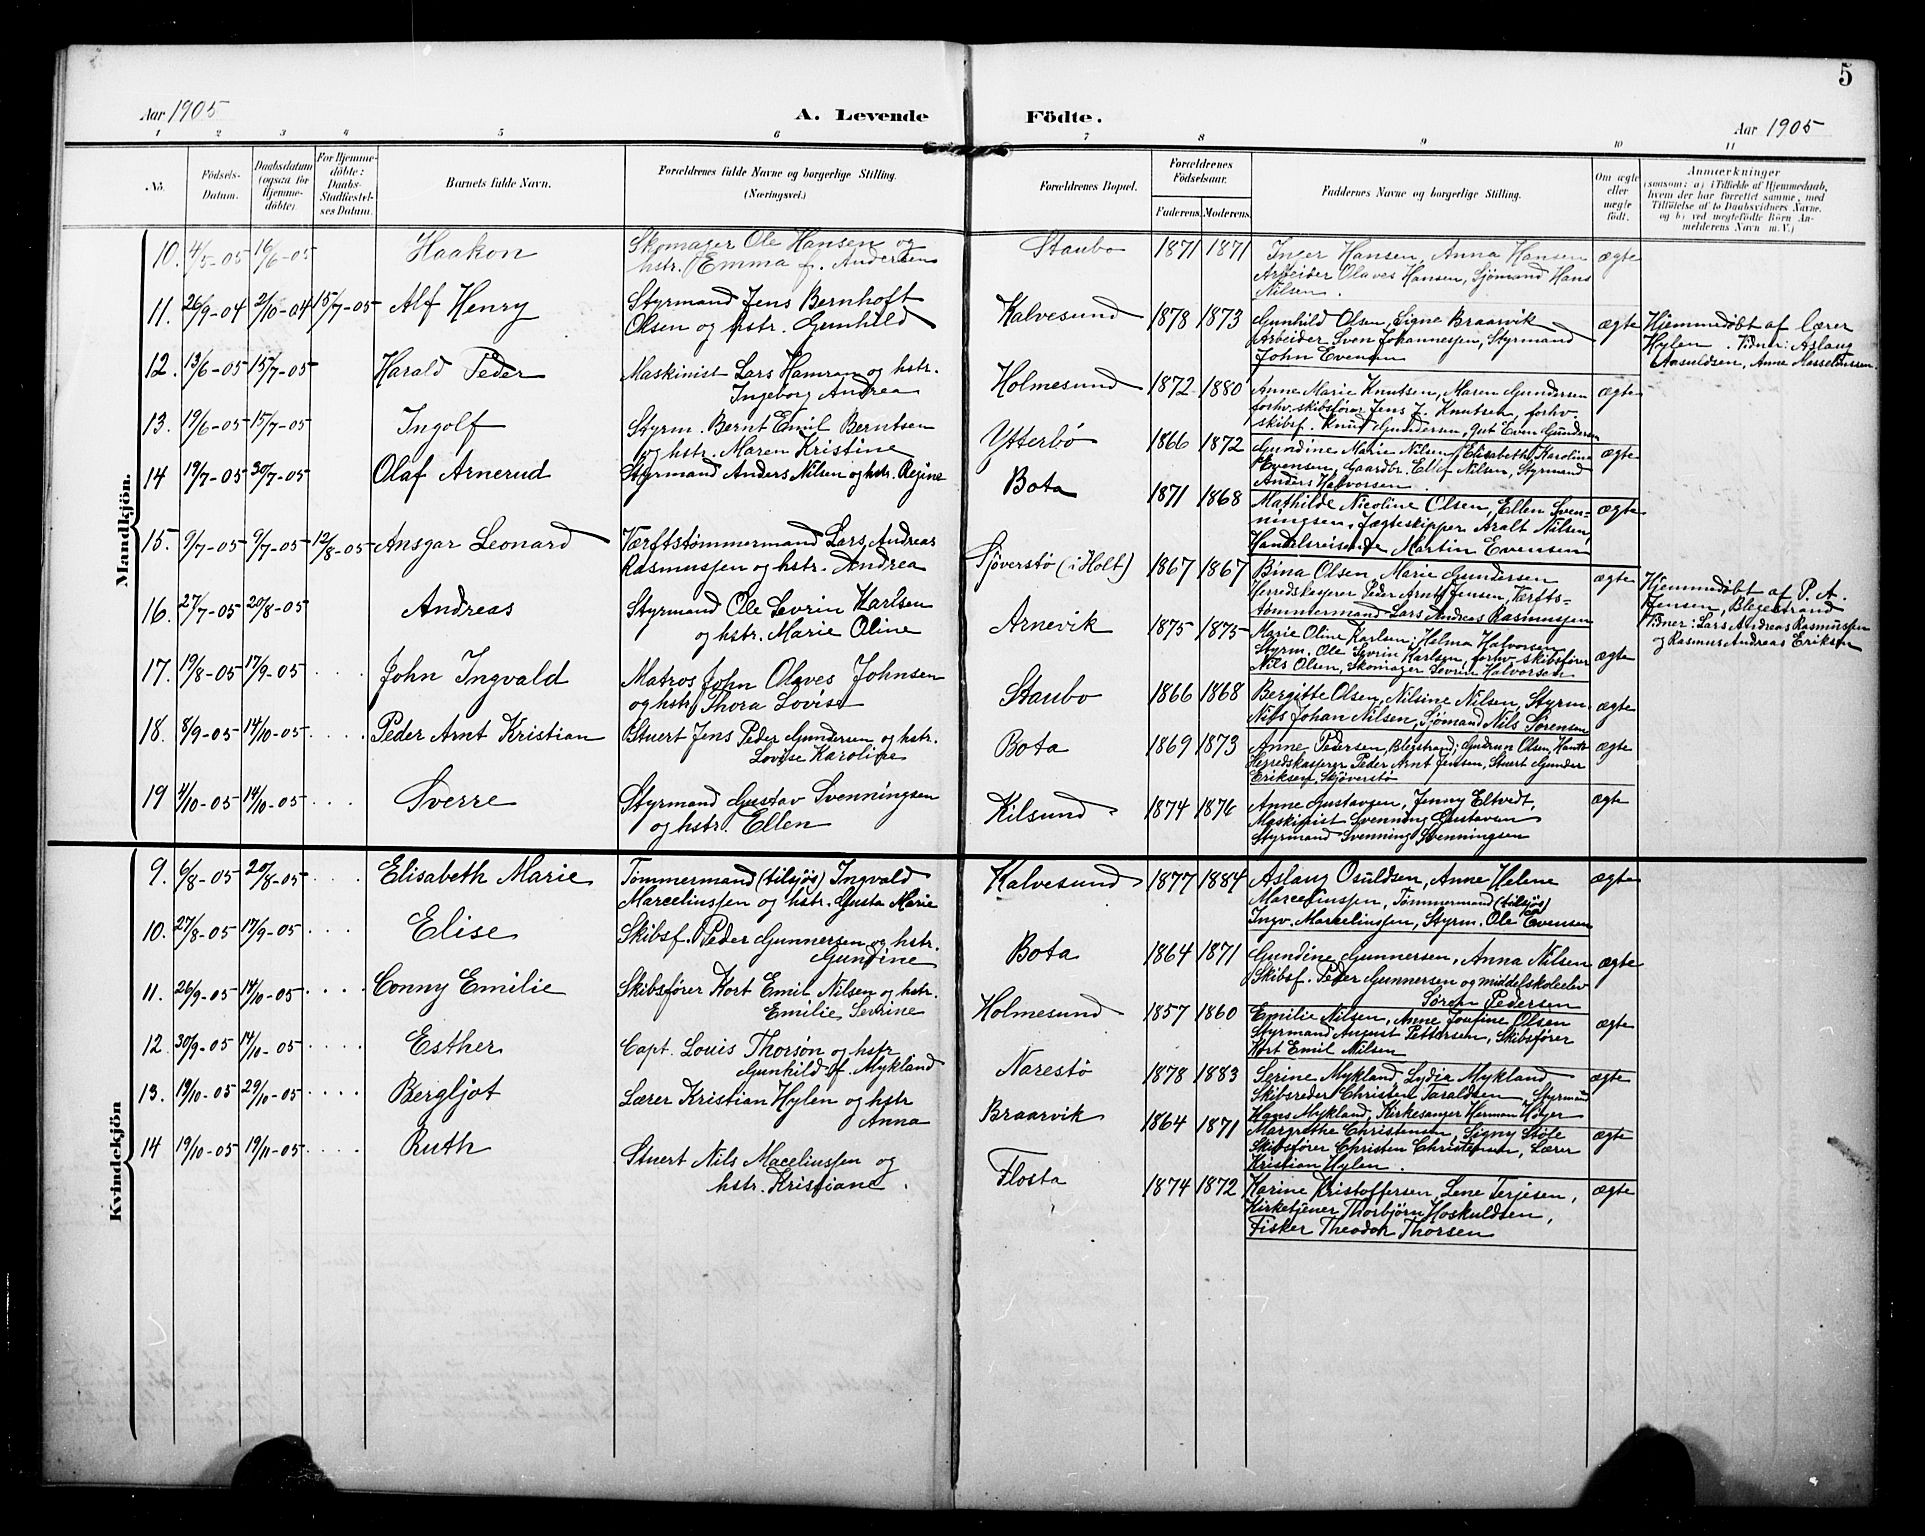 5
Aar 1905 A. Levende Födte. Aar 1905
1 2 3 4 5 6 7 8 9 10 11
No. Födsels-Datum. Daabsdatum (ogsaa for Hjemme-döbte). For Hjemme-döbte: Daabs-Stadfæstel-ses Datum. Barnets fulde Navn. Forældrenes fulde Navne og borgerlige Stilling. (Næringsvei.) Forældrenes Bopæl. Forældrenes Födselsaar. Faderens. Moderens. Faddernes Navne og borgerlige Stilling. Om ægte eller uægte födt. Anmærkninger (saasom: a) i Tilfælde af Hjemmedaab, hvem der har forrettet samme, med Tilföielse af to Daabsvidners Navne, og b) ved uægtefödte Börn An-melderens Navn m. V.)
Mandkjön.
10. 4/5-05 16/6-05 Haakon Skomager Ole Hansen og Staubo 1871 1871 Inger Hansen, Anna Hansen ægte
hstr. Emma f. Andersen Arbeider Olaves Hansen, Sjömand Hans
Nilsen.
11. 26/9-04 2/10-04 15/7-05 Alf Henry Styrmand Jens Bernhoft Kalvesund 1878 1873 Gunhild Olsen, Signe Braarvik ægte Hjemmedøbt af Lærer
Olsen og hstr. Gunhild Arbeider Sven Johannesen, Styrmand Hylen. Vidner: Aslaug
John Evensen Aasuldsen, Anne
12. 13/6-05 15/7-05 Harald Peder Maskinist Lars Hamran og hstr. Holmesund 1872 1880 Anne Marie Knutsen, Maren Gundersen ægte
Ingeborg Andrea forhv. skibsfører Jens J. Knutsen, forhv.
skibsf. Knud Gundersen, Even Gundersen
13. 19/6-05 15/7-05 Ingolf Styrm. Bernt Emil Berntsen Ytterbö 1866 1872 Gundine Marie Nilsen, Elisabeth Karoline ægte
og hstr. Maren Kristine Evensen, Gaardbr. Ellef Nilsen, Styrmand
Anders Halvorsen.
14 19/7-05 30/7-05 Olaf Arnerud Styrmand Anders Nilsen og hstr. Regine Bota 1871 1868 Mathilde Nicoline Olsen, Ellen Sven- ægte
ningsen, Jægteskipper Aralt Nilsen,
Handelsreisende Martin Evensen
15. 9/7-05 9/7-05 12/8-05 Ansgar Leonard Værftstømmermand Lars Andreas Sjöverstö (i Holt) 1867 1867 Bina Olsen, Marie Gundersen ægte Hjemmedøbt af P. A.
Rasmussen og hstr. Andrea Herredskasserer Peder Arnt Jensen, Værfts- Jensen, Blegestrand
tømmermand Lars Andreas Rasmussen Vidner: Lars Andreas Rasmussen
og Rasmus Andreas Eriksen
16. 27/7-05 20/8-05 Andreas Styrmand Ole Sevrin Karlsen Arnevik 1875 1875 Marie Oline Karlsen, Helma Halvorsen ægte
og hstr. Marie Oline Styrm. Ole Sevrin Karlsen, forhv. skibsfører
Nils Olsen, Skomager Sevrin Halvorsen
17. 19/8-05 17/9-05 .... John Ingvald Matros John Olaves Johnsen Staubo 1866 1868 Bergitte Olsen, Nilsine Nilsen, Styrm. ægte
og hstr. Thora Lovise Nils Johan Nilsen, Sjömand Nils Sørensen
18. 8/9-05 14/10-05 .... Peder Arnt Kristian Stuert Jens Peder Gundersen og hstr. Bota 1869 1873 Anne Pedersen, Blegstrand; Gudrun Olsen, ægte
Lovise Karoline Herredskasserer Peder Arnt Jensen, Stuert Gunder
Eriksen, Skjöverstö
19 4/10-05 14/10-05 .... Sverre Styrmand Gustav Svenningsen Kilsund 1874 1876 Anne Gustavsen, Jenny Eltvedt, ægte
og hstr. Ellen Maskinist Svenning Gustavsen
Styrmand Svenning Svenningsen
Kvindekjön
9. 6/8-05 20/8-05 .... Elisabeth Marie Tømmermand (tilsjös) Ingvald Kalvesund 1877 1884 Aslaug Osuldsen, Anne Helene ægte
Marcelinssen og hstr. Gusta Marie Marcelinssen, Tømmermand (tilsjös)
Ingv. Marcelinssen, Styrm. Ole Evensen
10. 27/8-05 17/9-05 .... Elise Skibsf. Peder Gunnersen og hstr. Bota 1864 1871 Gundine Gunnersen, Anna Nilsen ægte
Gundine Skibsf. Peder Gunnersen og middelskoleelev
Søren Pedersen
11. 26/9-05 14/10-05 .... Conny Emilie Skibsfører Kort Emil Nilsen og hstr. Holmesund 1857 1860 Emilie Nilsen, Anne Josefine Olsen ægte
Emilie Sevrine Styrmand August Pettersen, Skibsfører
Kort Emil Nilsen
12. 30/9-05 14/10-05 .... Esther Capt. Louis Thorsøn og hstr Narestö 1878 1883 Serine Mykland, Lydia Mykland ægte
Gunhild f. Mykland Skibsreder Christen Taraldsen, Styrmand
Hans Mykland, Kirkesanger Herman
13. 19/10-05 29/10-05 .... Bergljot Lærer Kristian Hylen og hstr Braarvik 1864 1871 Margrethe Christensen, Signy Støle ægte
Anna Skibsfører Christen Christensen, Lærer
Kristian Hylen.
14 19/10-05 19/11-05 .... Ruth Stuert Nils Macelinssen og Flosta 1874 1872 Karine Kristoffersen, Lene Terjesen, ægte
hstr. Kristiane. Kirketjener Thorbjörn Hoskuldsen,
Fisker Theodor Thorsen